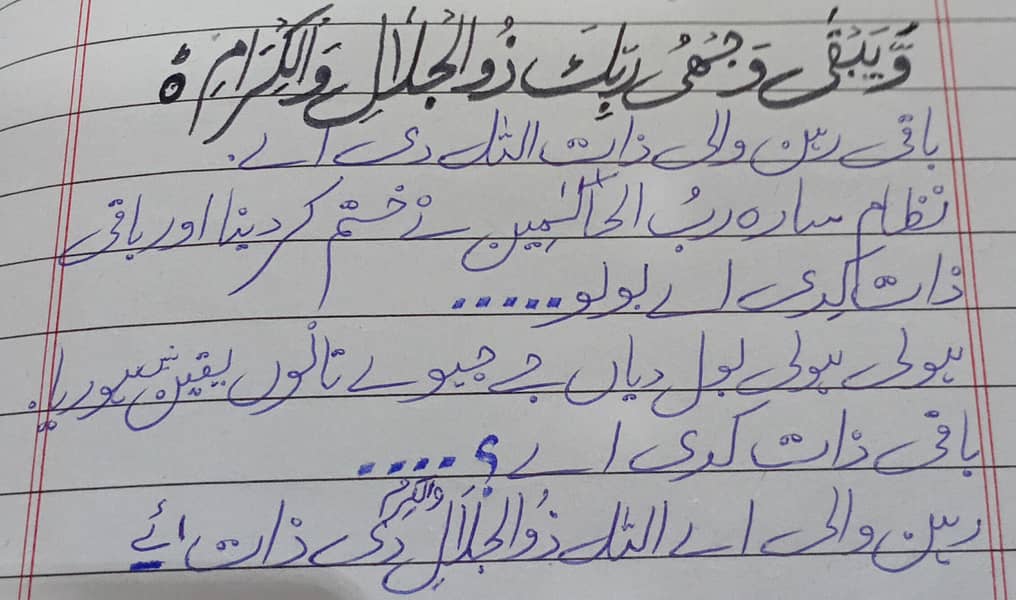 وَّيَبْقٰى وَجْهُ رَبِّكَ ذُو الْجَلَالِ وَالْاِكْرَامِ ہ
باقی رہن والی ذات اللہ دی اے۔
نظام سارہ ربُ العالمین نے ختم کر دینا اور باقی
ذات کدی اے بولو .....
ہولی ہولی بول دیاں جے جیویے تانوں یقین نئیں ہوریا۔
باقی ذات کدی اے ؟ ....
رہن والی اے اللہ ذُوالجَلَالِ والاکرام دی ذات اےَ